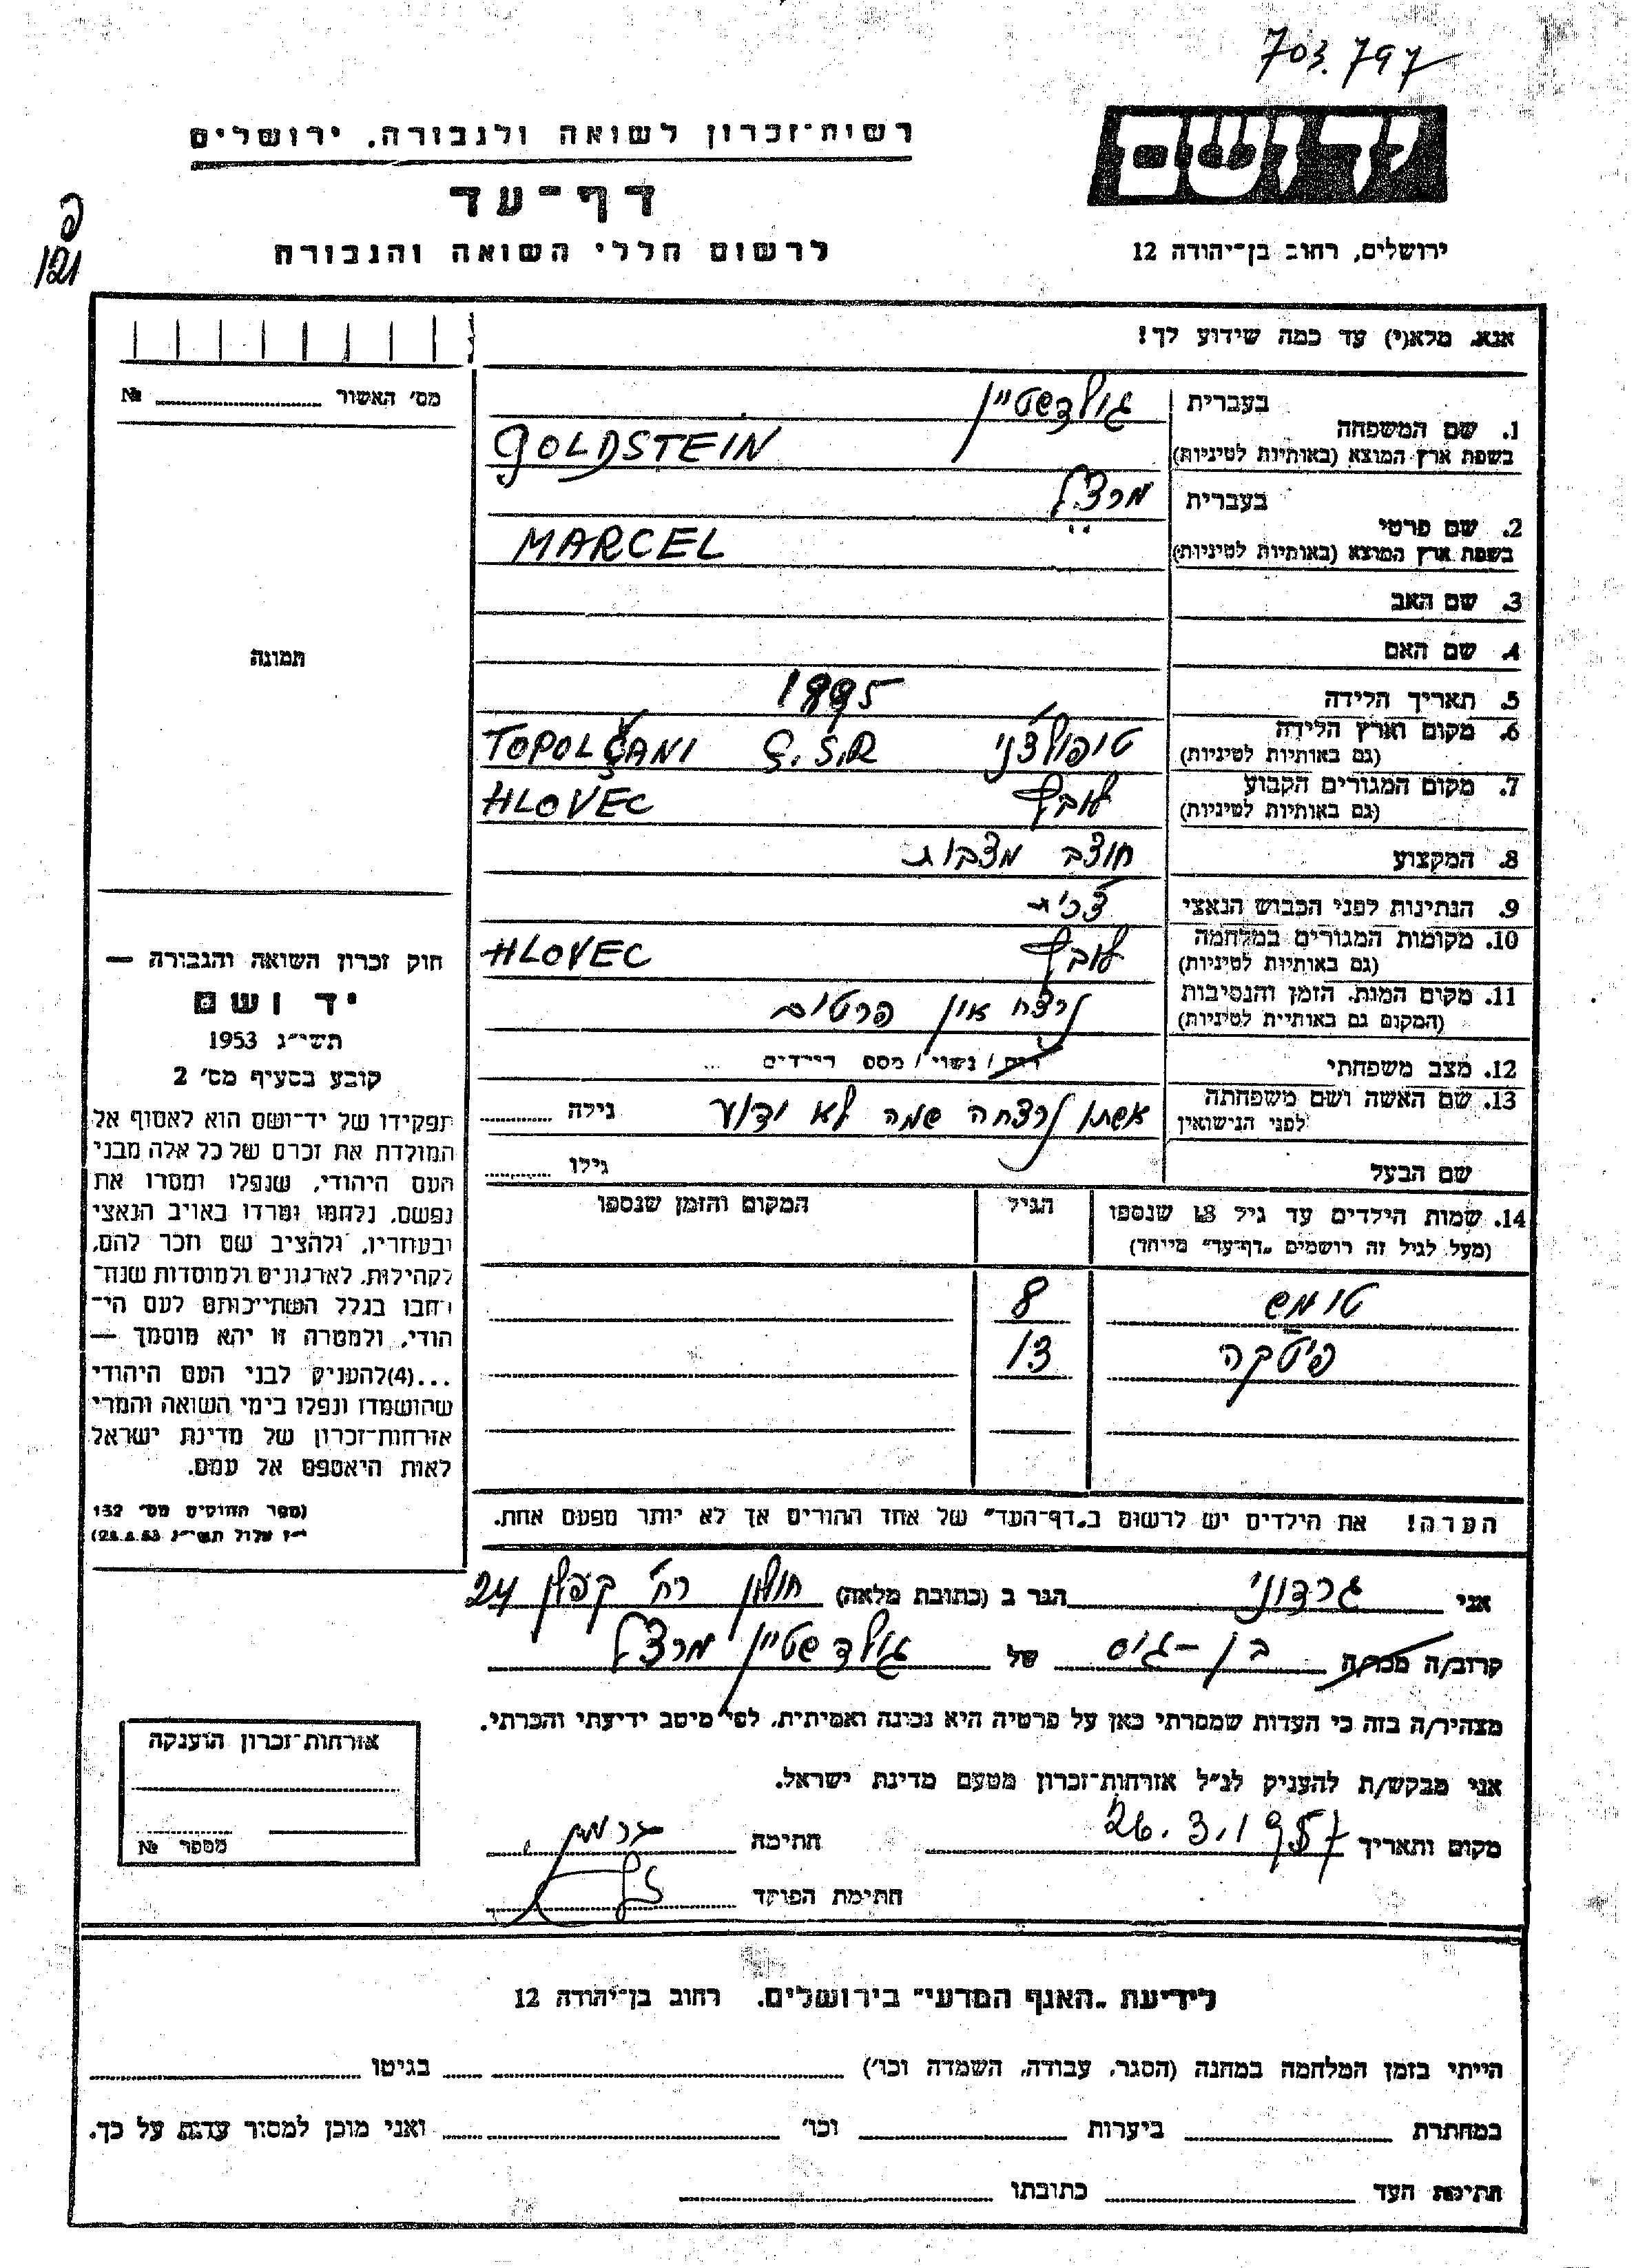 703.797
רשות־זכרון לשואה ולגבורה, ירושלים
יד ושם
דף־עד
לרשום חללי השואה והגבורה
ירושלים, רחוב בן־יהודה 12
121
אנא, מלא(י) עד כמה שידוע לך!
מס׳ האשור № 
בעברית גולדשטיין
1. שם המשפחה
בשפת ארץ המוצא (באותיות לטיניות) GOLDSTEIN
בעברית מרצל
2. שם פרטי
בשפת ארץ המוצא (באותיות לטיניות) MARCEL
3. שם האב
4. שם האם
תמונה
5. תאריך הלידה 1895
6. מקום וארץ הלידה טופולצני TOPOLČANI Č.S.R
(גם באותיות לטיניות)
7. מקום המגורים הקבוע HLOVEC
(גם באותיות לטיניות)
8. המקצוע חוצב מצבות
9. הנתינות לפני הכבוש הנאצי צכית
10. מקומות המגורים במלחמה HLOVEC
(גם באותיות לטיניות)
11. מקום המות, הזמן והנסיבות נרצח אין פרטים
(המקום גם באותיות לטיניות)
12. מצב משפחתי רווק / נשוי / מספר ילדים
13. שם האשה ושם משפחתה אשתו נרצחה שמה לא ידוע גילה
לפני הנישואין
שם הבעל גילו
14. שמות הילדים עד גיל 18 שנספו הגיל המקום והזמן שנספו
(מעל לגיל זה רושמים „דף־עד״ מיוחד)
טומש 8
פיטקה 13
הערה! את הילדים יש לרשום ב„דף־העד״ של אחד ההורים אך לא יותר מפעם אחת.
חוק זכרון השואה והגבורה —
יד ושם
תשי״ג 1953
קובע בסעיף מס׳ 2
תפקידו של יד־ושם הוא לאסוף אל
המולדת את זכרם של כל אלה מבני
העם היהודי, שנפלו ומסרו את
נפשם, נלחמו ומרדו באויב הנאצי
ובעוזריו, ולהציב שם וזכר להם,
לקהילות, לארגונים ולמוסדות שנח־
רבו בגלל השתייכותם לעם הי־
הודי, ולמטרה זו יהא מוסמך —
...(4)להעניק לבני העם היהודי
שהושמדו ונפלו בימי השואה והמרי
אזרחות־זכרון של מדינת ישראל
לאות היאספם אל עמם.
(ספר החוקים מס׳ 132
י״ז אלול תשי״ג 28.8.53)
אני גרדוני הגר ב (כתובת מלאה) חולון רח׳ קפלן 24
קרוב/ה מכר/ה בן-גיס של גולדשטיין מרצל
מצהיר/ה בזה כי העדות שמסרתי כאן על פרטיה היא נכונה ואמיתית, לפי מיטב ידיעתי והכרתי.
אני מבקש/ת להעניק לנ״ל אזרחות־זכרון מטעם מדינת ישראל.
מקום ותאריך 26.3.1957 חתימה
חתימת הפוקד
אזרחות־זכרון הוענקה
מספר №
לידיעת „האגף המדעי״ בירושלים, רחוב בן־יהודה 12
הייתי בזמן המלחמה במחנה (הסגר, עבודה, השמדה וכו׳) בגיטו
במחתרת ביערות וכו׳ ואני מוכן למסור עדות על כך.
חתימת העד כתובתו